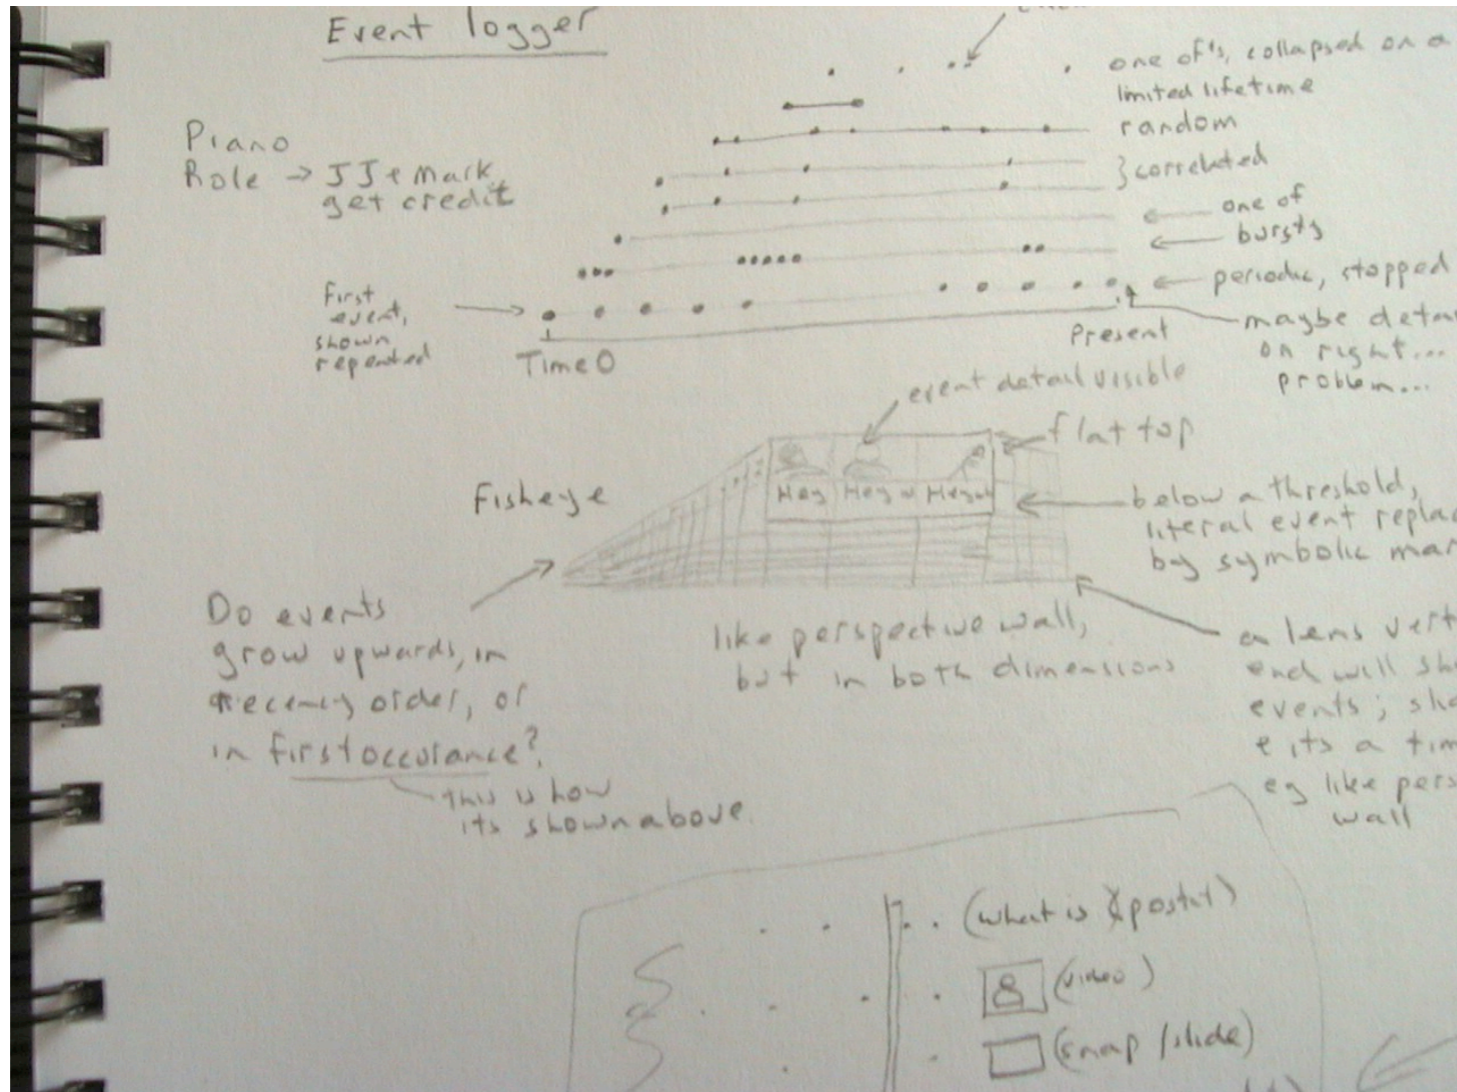 Event logger
one of's, collapsed on a
limited lifetime
random
} correlated
one of
bursts
periodic, stopped
maybe
on right...
problem...
Piano
Role → JJ + Mark
get credit
first
event,
shown
repeated
Time 0
Present
event detail visible
flat top
Fisheye
Hey Hey Hey
below a threshold,
literal event
by symbolic
Do events
grow upwards, in
recency order, or
in first occurance?
this is how
its shown above.
like perspective wall,
but in both dimensions
a lens
end will
events;
e its a
eg like
wall
(what is postit)
(video)
(snap / slide)